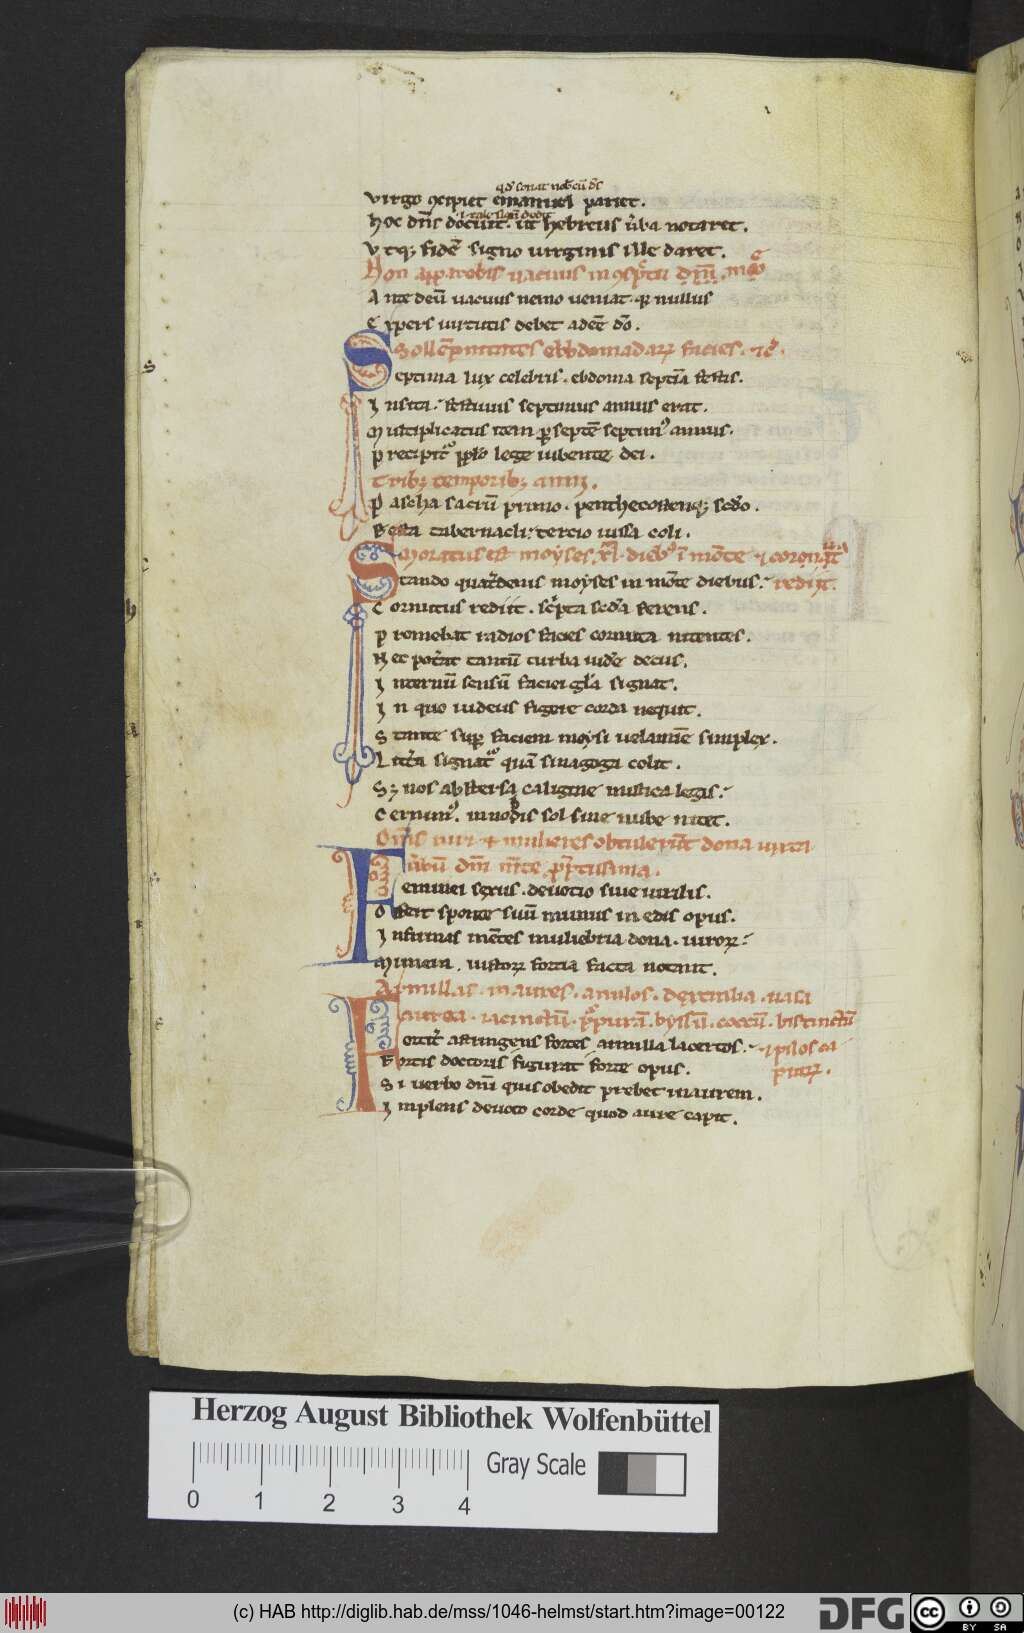 qd' sonat nob'cū d's
virgo ꝯcipiet emanuel pariet.
i. tale signū dedit
hoc dn̄s docuit. ut hebreus u̾ba notaret.
Vtq; fidē signo uirginis ille daret.
Non apparebis uacuus in ꝯspectu dn̄i
Ante deū uacuus nemo ueniat. qr nullus
Expers uirtutis debet adeē dō.
Sollēpnitates ebdomadaꝝ facies. ⁊c̄.
Septima lux celebris. ebdoma septīa festis.
Insita. festiuus septimus annus erat.
Multiplicatus item ꝑ septē septimꝰ annus.
Precipitᷣ pplo lege iubente dei.
Tribꝫ temporibꝫ anni.
Pascha sacrū primo. penthecostenqꝫ scdo.
Festa tabernacli: tercio iussa coli.
Moratus est moyses xl. diebꝰ ī mōte ⁊ cornuta
Stando quat̾denus moyses in mōte diebus: rediit.
Cornutus rediit. sc̾pta scda ferens.
Promebat radios facies cornuta nitentes.
Nec pot̾at tantū turba uide̾ decus.
Internū sensū faciei gl̄a signat.
In quo iudeus figere corda nequit.
Stante suꝑ faciem moysi uelamīe simplex.
Litt̾a signatᷣ quā sinagoga colit.
Sꝫ nos abstersa caligine mistica legis:
Cernimꝰ. in nobis sol sine nube nitet.
Om̄is uiri ⁊ mulieres obtulerūt dona iuxta
u̾bū dn̄i m̄te prōtissima.
Feminei sexus. deuotio siue uirilis.
Offert sponte suū munus in edis opus.
Infirmas mētes muliebria dona. uiroꝝ:
Munera. iustoꝝ fortia facta notant.
Armillas. inaures. anulos. dextralia. uasa
aurea. iacinctū. pᷣpurā. byssū. coccū. bistinctū
Fortit̾ astringens fortes armilla lacertos. ⁊ pilos ca
Fortis doctoris figurat forte opus. praꝝ.
Si uerbo dn̄i quis obedit prebet inaurem.
Implens deuoto corde quod aure capit.
Herzog August Bibliothek Wolfenbüttel
Gray Scale
0 1 2 3 4
(c) HAB http://diglib.hab.de/mss/1046-helmst/start.htm?image=00122
DFG
cc BY SA